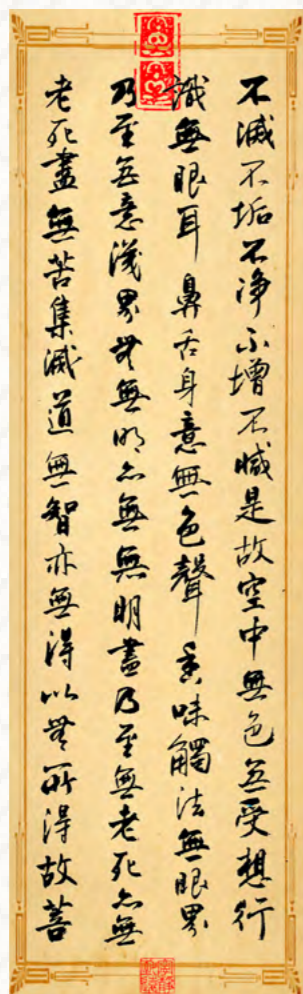 不滅不垢不淨不增不減是故空中無色無受想行
識無眼耳鼻舌身意無色聲香味觸法無眼界
乃至無意識界無無明亦無無明盡乃至無老死亦無
老死盡無苦集滅道無智亦無得以無所得故菩